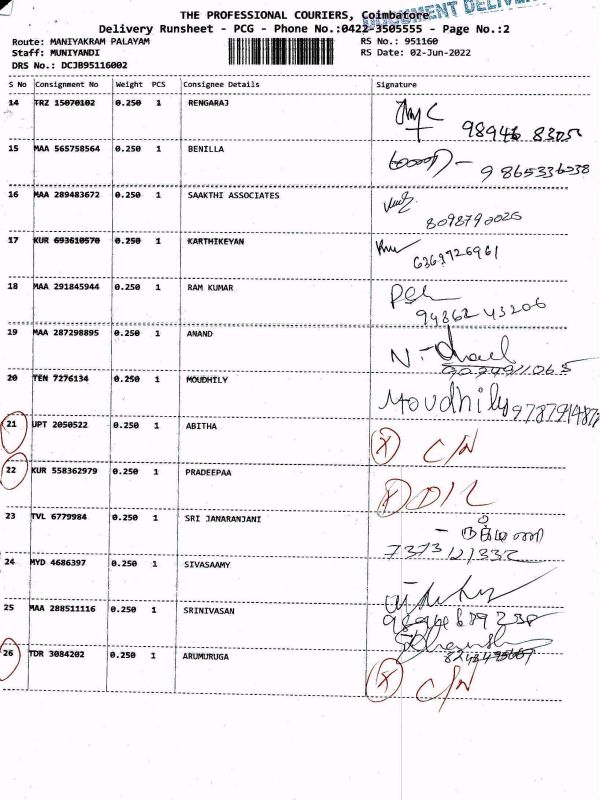 THE PROFESSIONAL COURIERS, Coimbatore
Delivery Runsheet - PCG - Phone No.:0422-3505555 - Page No.:2
Route: MANIYAKRAM PALAYAM
RS No.: 951160
Staff: MUNIYANDI
RS Date: 02-Jun-2022
DRS No.: DCJB95116002
S No Consignment No Weight PCS Consignee Details Signature
14 TRZ 15070102 0.250 1 RENGARAJ
15 MAA 565758564 0.250 1 BENILLA
9865336038
16 MAA 289483672 0.250 1 SAAKTHI ASSOCIATES
8098790026
17 KUR 693610570 0.250 1 KARTHIKEYAN
6369726961
18 MAA 291845944 0.250 1 RAM KUMAR
94862 43206
19 MAA 287298895 0.250 1 ANAND
20 TEN 7276134 0.250 1 MOUDHILY Moudhily
21 UPT 2050522 0.250 1 ABITHA X C/N
22 KUR 558362979 0.250 1 PRADEEPAA X D/L
23 TVL 6779984 0.250 1 SRI JANARANJANI
7373121332
24 MYD 4686397 0.250 1 SIVASAAMY
25 MAA 288511116 0.250 1 SRINIVASAN
26 TDR 3084202 0.250 1 ARUMURUGA X C/N